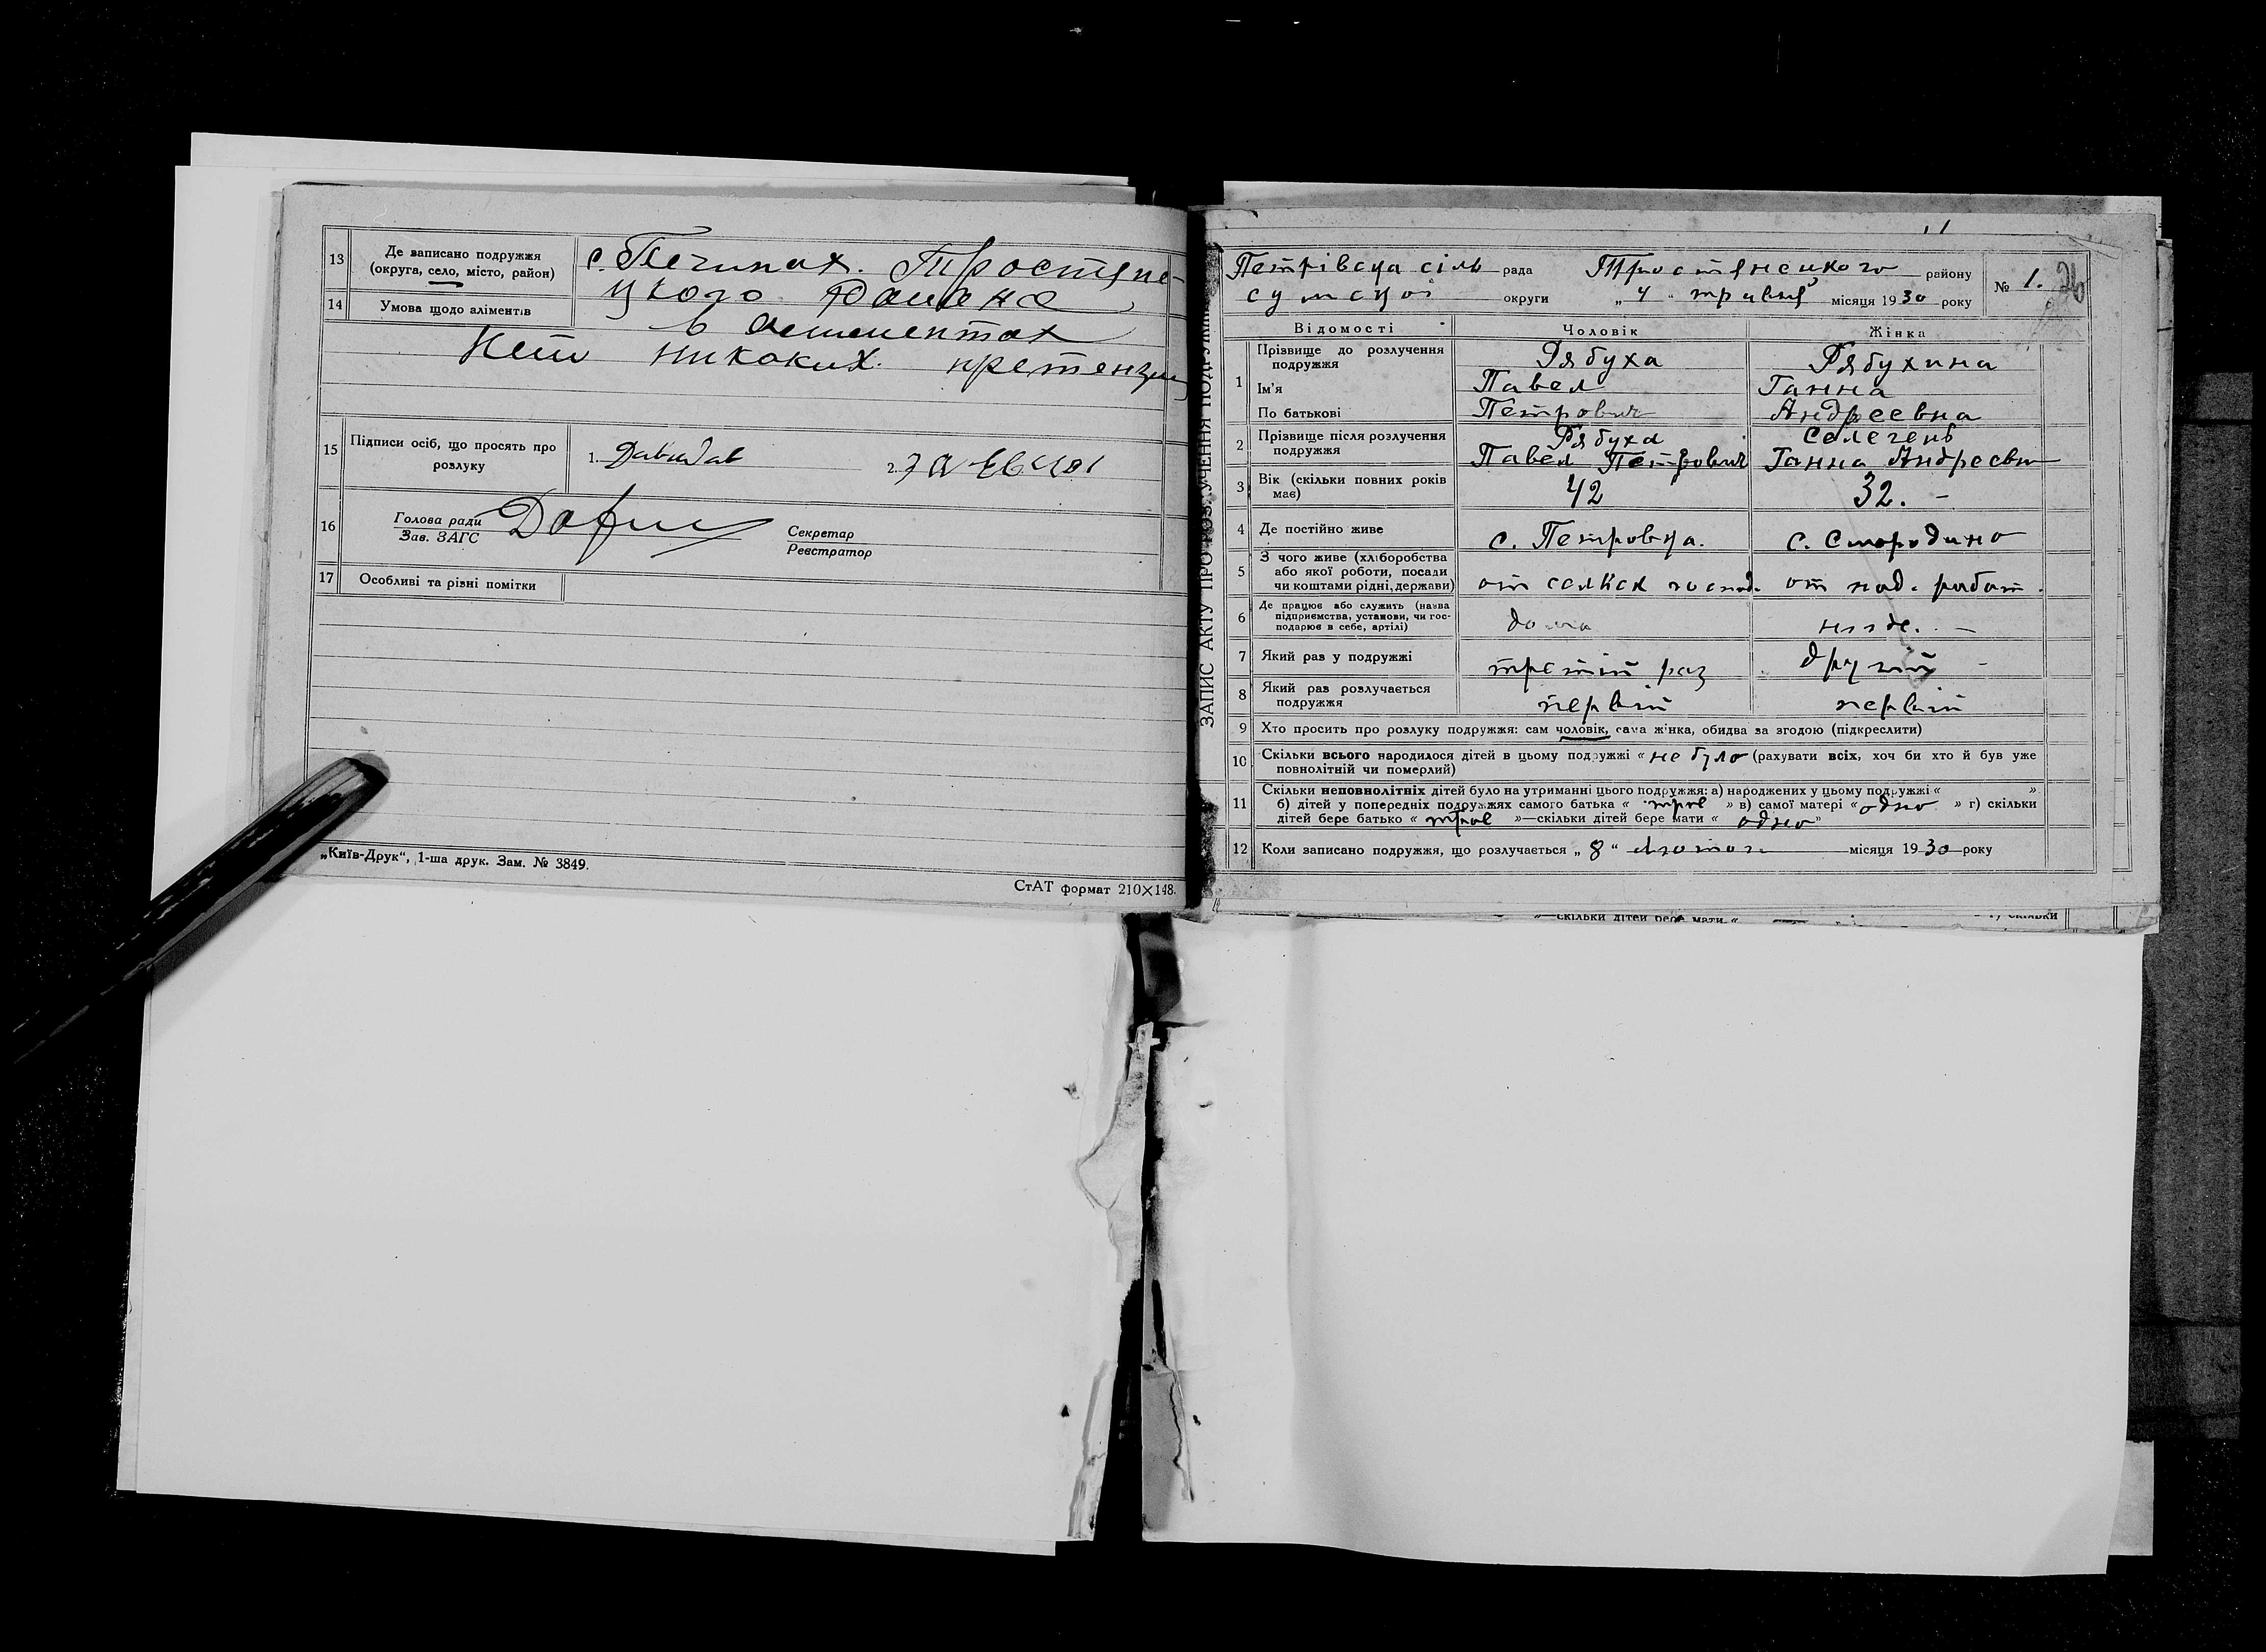 13 Де записано подружжя
(округа, село, місто, район)
с. Печинах. Тростяне-
цкого Района
14 Умова щодо аліментів
в алиментах
Нет никоких. претензий
15 Підписи осіб, що просять про
розлуку
1. Давидав 2.
16 Голова ради
Зав. ЗАГС
Секретар
Реєстратор
17 Особливі та різні помітки
„Київ-Друк“, 1-ша друк. Зам. № 3849.
СтАТ формат 210×148.
ЗАПИС АКТУ ПРО РОЗЛУЧЕННЯ ПОДРУЖЖЯ
Петрівска сіль рада Тростянецкого району № 1. 26
сумскоі округи „ 4 “ травня місяця 1930 року
Відомості Чоловік Жінка
1 Прізвище до розлучення
подружжя Рябуха Рябухина
Ім'я Павел Ганна
По батькові Петрович Андреевна
2 Прізвище після розлучення
подружжя Рябуха Селегень
Павел Петрович Ганна Андреевн
3 Вік (скільки повних років
має) 42 32. –
4 Де постійно живе с. Петровка. с. Смородино
5 З чого живе (хліборобства
або якої роботи, посади
чи коштами рідні, держави) от сельск господ. от под. работ.
6 Де працює або служить (назва
підприємства, установи, чи гос-
подарює в себе, артілі) дома нигде. –
7 Який раз у подружжі третій раз другий –
8 Який раз розлучається
подружжя первій первій
9 Хто просить про розлуку подружжя: сам чоловік, сама жінка, обидва за згодою (підкреслити)
10 Скільки всього народилося дітей в цьому подружжі « не було (рахувати всіх, хоч би хто й був уже
повнолітній чи померлий)
11 Скільки неповнолітніх дітей було на утриманні цього подружжя: а) народжених у цьому подружжі « »
б) дітей у попередніх подружжях самого батька « трое » в) самої матері « одно » г) скільки
дітей бере батько « трое »—скільки дітей бере мати « одно »
12 Коли записано подружжя, що розлучається „ 8 “ лютого місяця 1930 року
»—скільки дітей бере мати « г) скільки